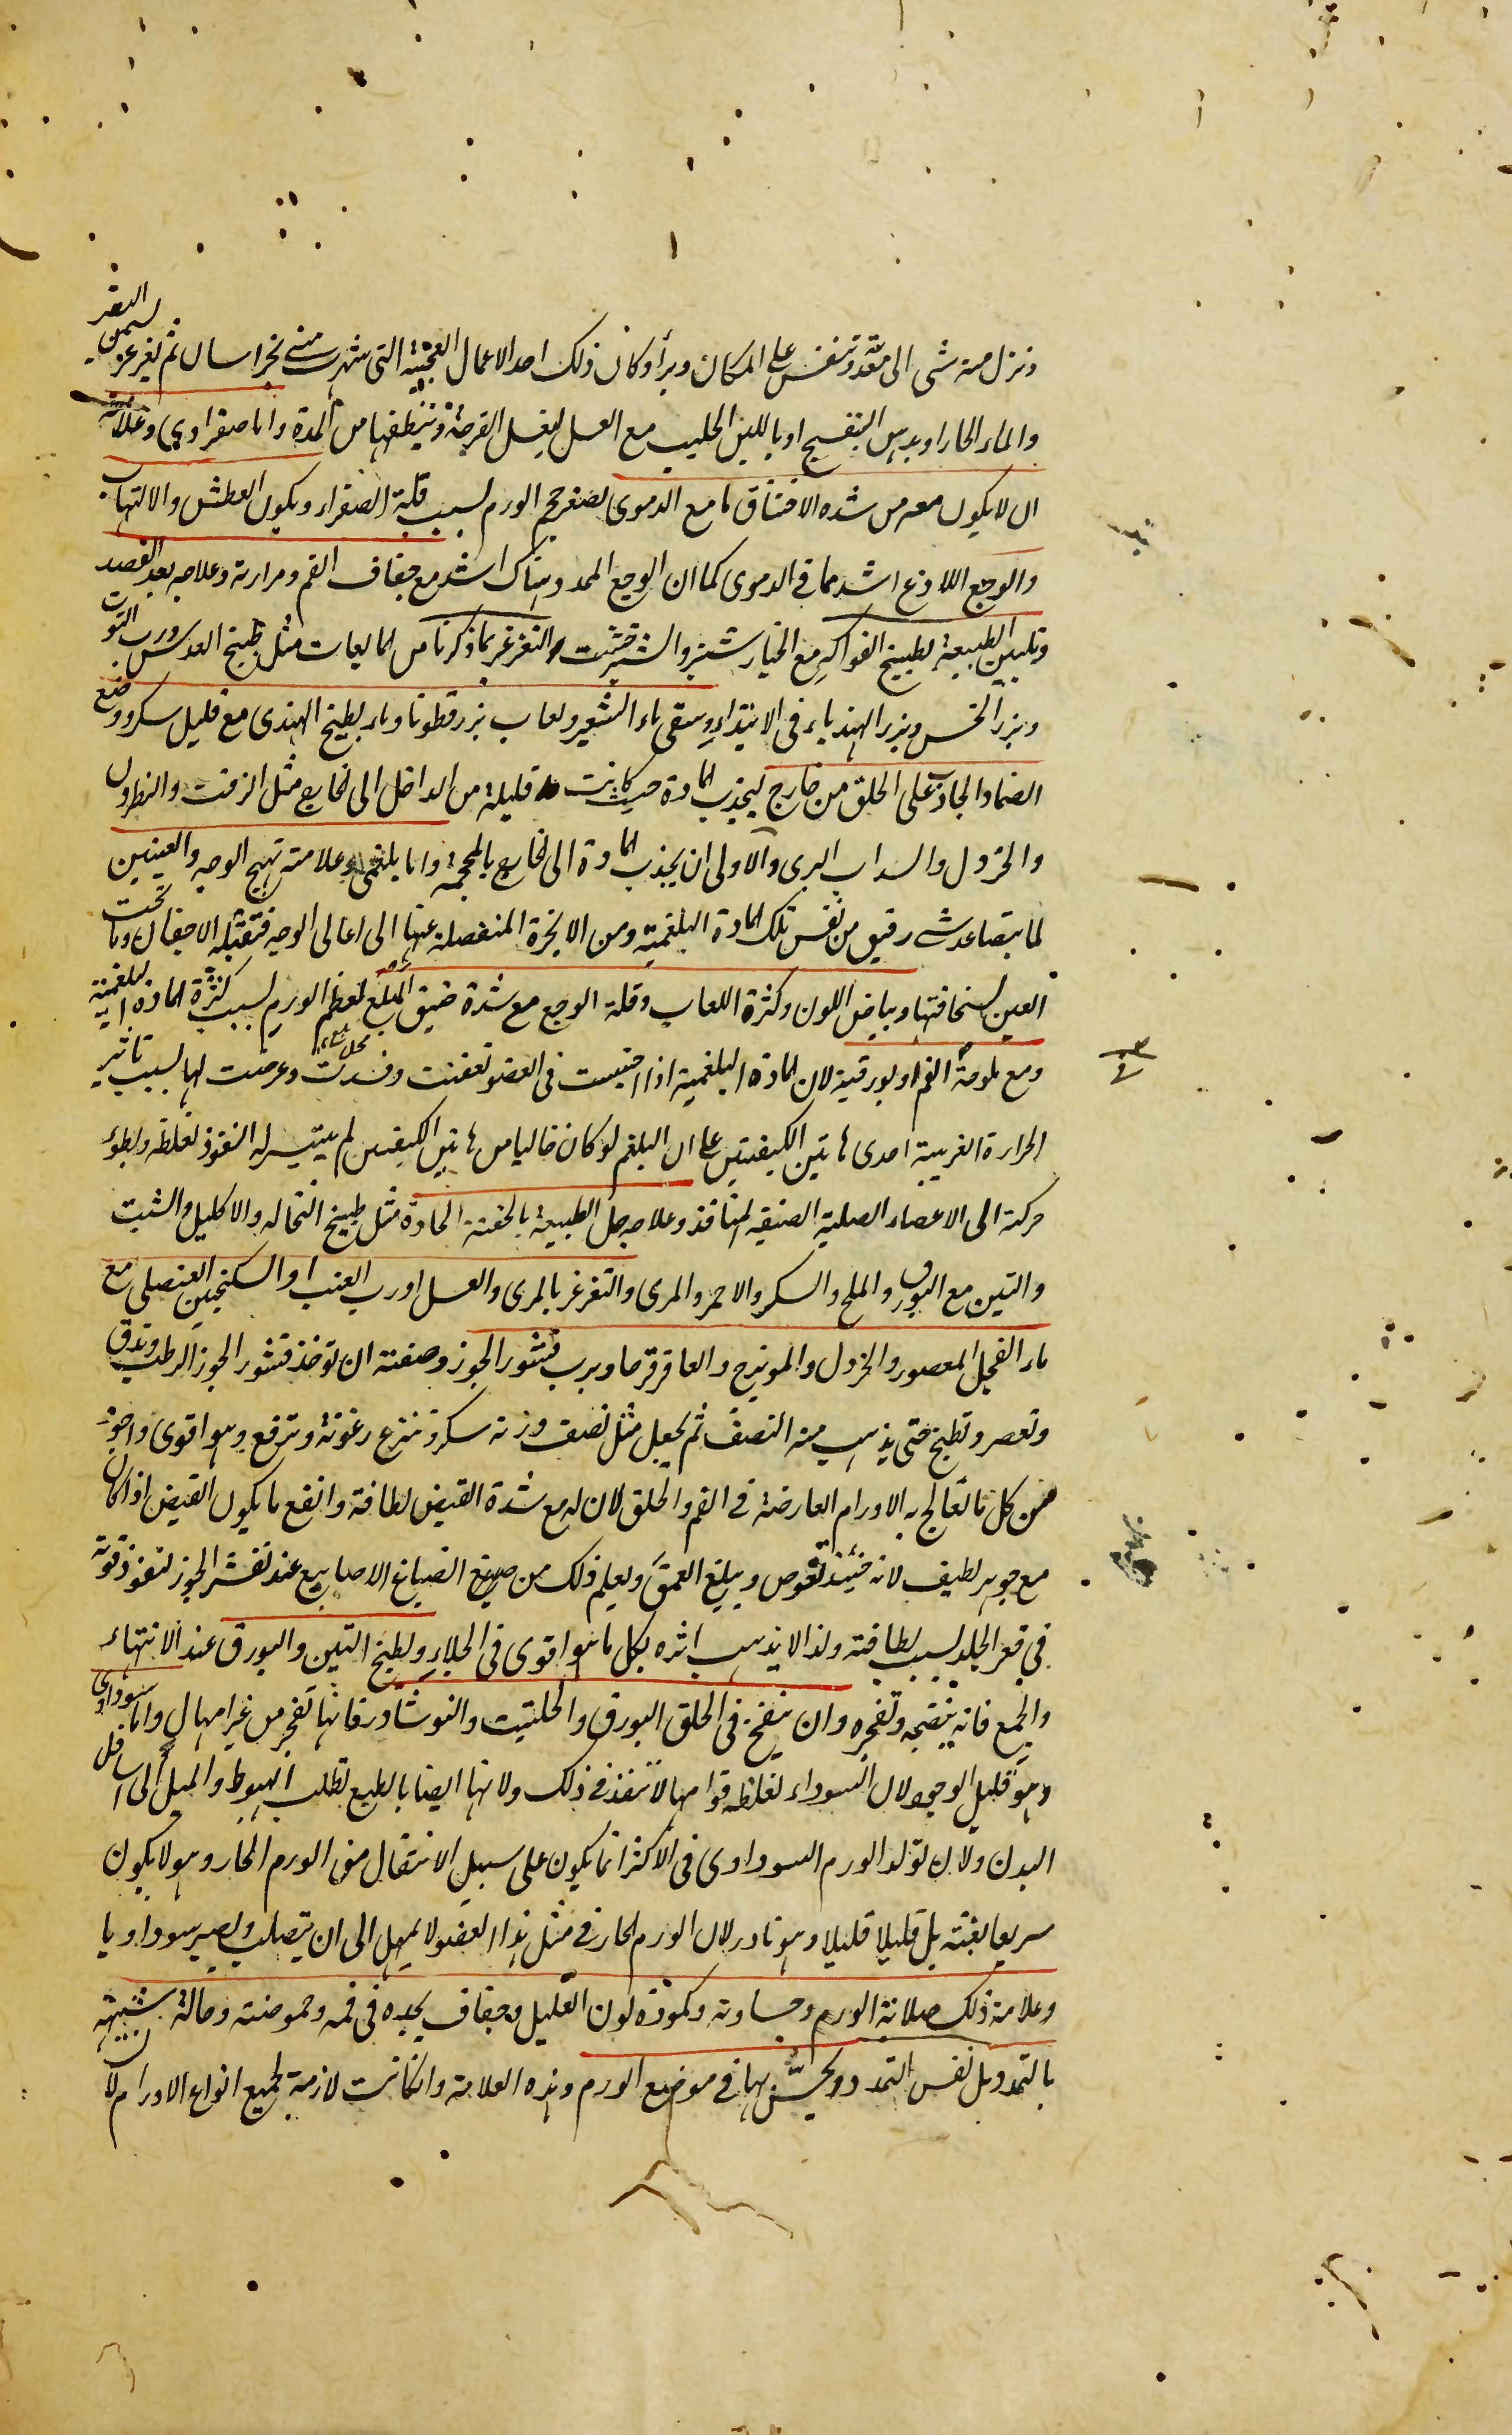 ونزل منه شى الى معدته وتنفس على المكان وبرأ وكان ذلك احد الاعمال العجيبة التى شهرت منى بخراسان ثم يغرغر بسمن البقر
والماء الحار او بدهن البنفسج او باللبن الحليب مع العسل ليغسل القرحة وتنظفها من المدة واما صفراوى وعلامته
ان لا يكون معه من شدة الاختناق ما مع الدموى لصغر حجم الورم بسبب قلة الصفراء ويكون العطش والالتهاب
والوجع اللاذع اشد مما فى الدموى كما ان الوجع الممدد هناك اشد مع جفاف الفم ومرارته وعلاجه بعد الفصد
وتليين الطبيعة بطبيخ الفواكه مع الخيار شنبر والشيرخشت والتغرغر بما ذكرنا من المايعات مثل طبيخ العدس ورب التوت
وبزر الخس وبزر الهندباء فى الابتداء وسقى ماء الشعير ولعاب بزرقطونا وماء بطيخ الهندى مع قليل سكر ووضع
الضماد الجاذب على الحلق من خارج ليجذب المادة حيث كانت قليلة من الداخل الى الخارج مثل الزفت والنطرون
والخردل والسداب البرى والاولى ان يجذب المادة الى الخارج بالمحجمة واما بلغمى وعلامته تهيج الوجه والعينين
لما يتصاعد شى رقيق من نفس تلك المادة البلغمية ومن الابخرة المنفصلة عنها الى اعالى الوجه فتقبله الاجفان وما تحت
العين لسخافتها وبياض اللون وكثرة اللعاب وقلة الوجع مع شدة ضيق المبلع لعظم الورم بسبب كثرة المادة البلغمية
ومع ملوحة الفم او بورقية لان المادة البلغمية اذا احتبست فى العضو تعفنت وفسدت وعرضت لها بسبب تاثير
الحرارة الغريبة احدى هاتين الكيفيتين على ان البلغم لو كان خاليا من هاتين الكيفيتين لم يتيسر له النفوذ لغلظه وبطوء
حركته الى الاعضاء الصلبة الضيقة المنافذ وعلاجه حل الطبيعة بالحقنة الحادة مثل طبيخ النخالة والاكليل والشبت
والتين مع البورق والملح والسكر والاحمر والمرى والتغرغر بالمرى والعسل او رب العنب او السكنجبين العنصلى مع
ماء الفجل المعصور والخردل والمويزج والعاقرقرحا وبرب قشور الجوز وصفته ان توخذ قشور الجوز الرطب وتدق
وتعصر وتطبخ حتى يذهب منه النصف ثم يجعل مثل نصف وزنه سكر وتنزع رغوته وترفع وهو اقوى واجود
من كل ما تعالج به الاورام العارضة فى الفم والحلق لان له مع شدة القبض لطافة وانفع ما يكون القبض اذا كان
مع جوهر لطيف لانه حينئذ تغوص ويبلغ العمق ويعلم ذلك من صبغ الصباغ الاصابع عند تقشر الجوز لنفوذ قوته
فى قعر الجلد بسبب لطافته ولذا لا يذهب اثره بكل ما هو اقوى فى الجلاء وبطبخ التين والبورق عند الانتهاء
والجمع فانه ينضجه وتفجره وان ينفخ فى الحلق البورق والحلتيت والنوشادر فانها تفجر من غير امهال واما سوداوى
وهو قليل الوجود لان السوداء لغلظ قوامها لا تنفذ فى ذلك ولانها ايضا بالطبع تطلب الهبوط والميل الى اسافل
البدن ولان تولد الورم السوداوى فى الاكثر انما يكون على سبيل الانتقال من الورم الحار وهو لا يكون
سريعا بغتة بل قليلا قليلا وهو نادر لان الورم الحار فى مثل هذا العضو لا يمهل الى ان يتصلب ويصير سوداويا
وعلامة ذلك صلابة الورم وجساوته وكمودة لون العليل وجفاف يجده فى فمه وحموضته وحالة شبيهة
بالتمدد بل نفس التمدد ويحس بها فى موضع الورم وهذه العلامة وان كانت لازمة لجميع انواع الاورام